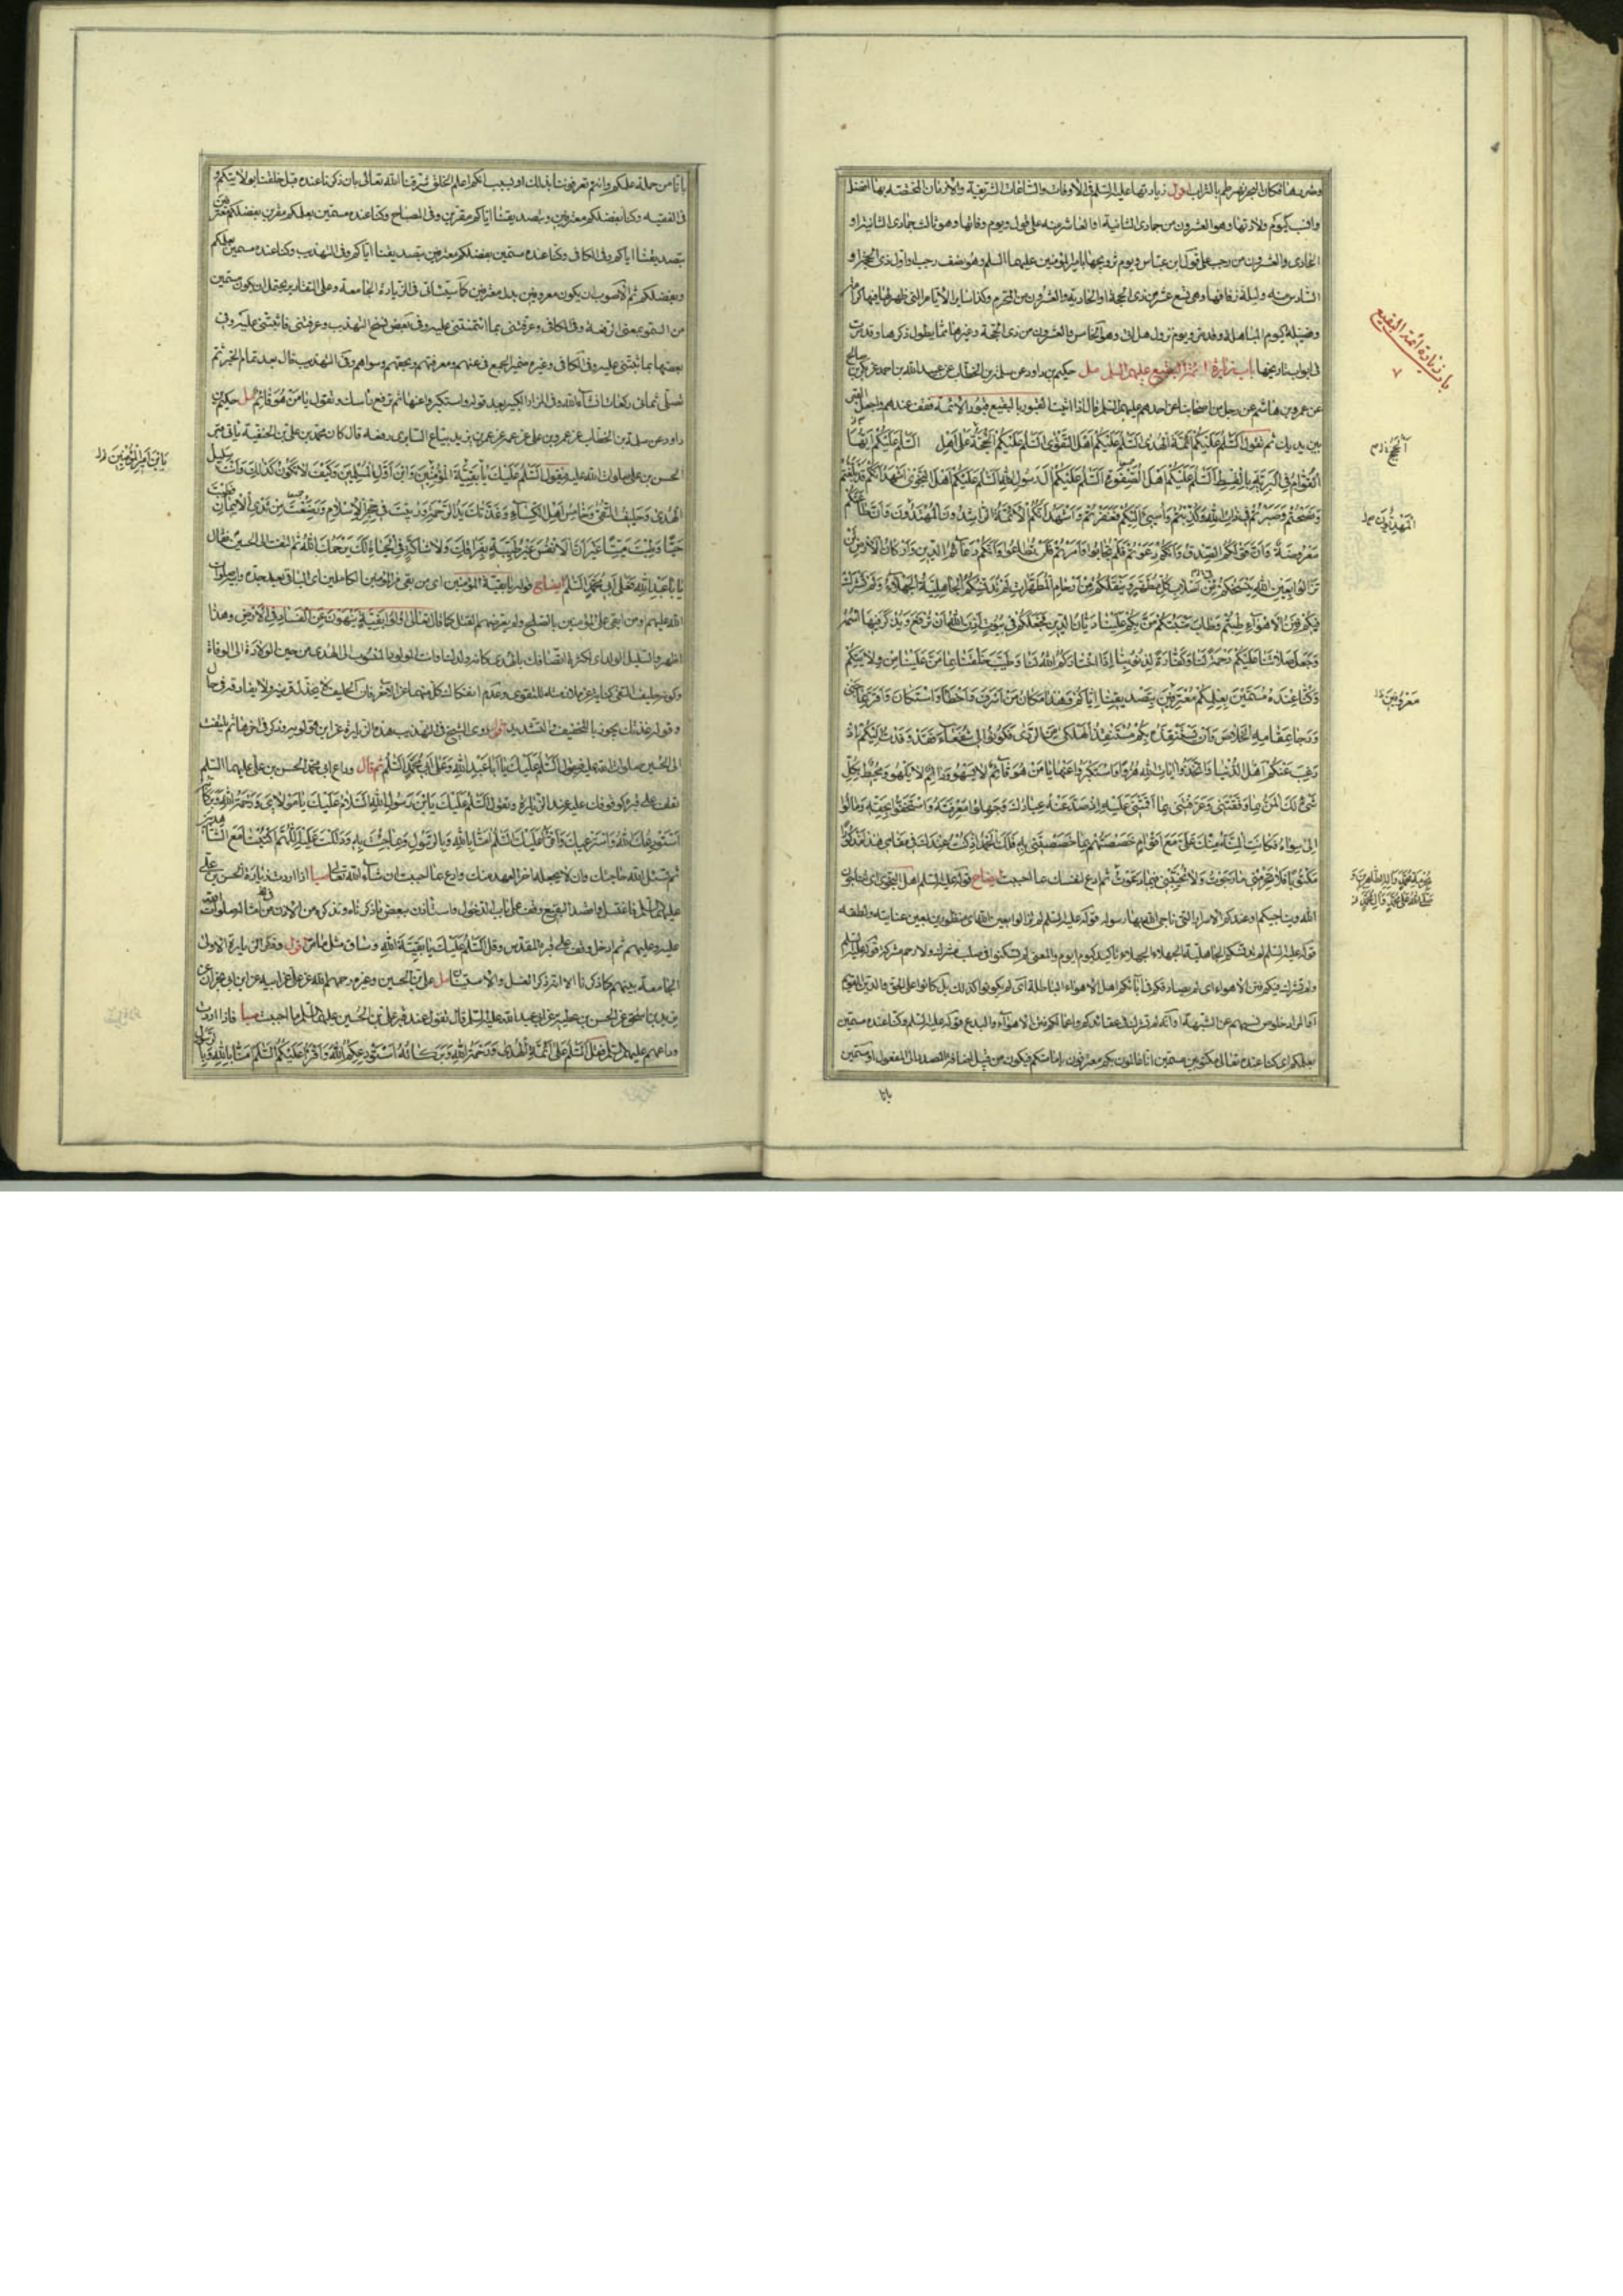 وشربها فكان الخضر بالتراب اقول زيارتها عليها السلم في الاوقات والساعات الشريفة والازمان المختصة بها افضل
وانسب كيوم ولادتها وهو العشرون من جمادى الثانية او العاشر منه على قول ويوم وفاتها وهو ثالث جمادى الثانية او
الحادى والعشرون من رجب على قول ابن عباس ويوم تزويجها بامير المؤمنين عليهما السلم وهو نصف رجب او اول ذى الحجة او
السادس منه وليلة زفافها وهى تسع عشر من ذى الحجة او الحادية والعشرون من المحرم وكذا ساير الايام التى ظهر فيها كرامة
وفضيلة كيوم المباهلة وقد مر ويوم نزول هل اتى وهو الخامس والعشرون من ذى الحجة وغيرهما مما يطول ذكرها وقد مرت
فى ابواب تاريخها باب زيارة ائمة البقيع عليهم السلم مل حكيم بن داود عن سلمة بن الخطاب عن عبد الله بن احمد عن بكر بن صالح
عن عمرو بن هاشم عن رجل من اصحابنا عن احدهم عليهم السلم قال اذا اتيت القبور بالبقيع قبور الائمة فقف عندهم واجعل القبر
بين يديك ثم تقول السلم عليكم ائمة الهدى السلم عليكم اهل التقوى السلم عليكم الحجة على اهل السلم عليكم ايها
القوام في البرية بالقسط السلم عليكم اهل الصفوة السلم عليكم ال رسول الله السلم عليكم اهل النجوى اشهد انكم قد بلغتم
ونصحتم وصبرتم في ذات الله وكذبتم واسيئ اليكم فغفرتم واشهد انكم الائمة الراشدون المهتدون وان طاعتكم
مفروضة وان قولكم الصدق وانكم دعوتم فلم تجابوا وامرتم فلم تطاعوا وانكم دعائم الدين واركان الارض لم
تزالوا بعين الله ينسخكم من اصلاب كل مطهر وينقلكم من ارحام المطهرات لم تدنسكم الجاهلية الجهلاء ولم تشرك
فيكم فتن الاهواء طبتم وطاب منبتكم من بكم علينا ديان الدين فجعلكم في بيوت اذن الله ان ترفع ويذكر فيها اسمه
وجعل صلاتنا عليكم رحمة لنا وكفارة لذنوبنا اذ اختاركم الله لنا وطيب خلقنا بما من علينا من ولايتكم
وكنا عنده مسمين بعلمكم معترفين بتصديقنا اياكم وهذا مكان من اسرف واخطأ واستكان واقر بما جنى
ورجا بمقامه الخلاص وان يستنقذه بكم مستنقذ الهلكى من الردى فكونوا لى شفعاء فقد وفدت اليكم اذ
رغب عنكم اهل الدنيا واتخذوا ايات الله هزوا واستكبروا عنها يا من هو قائم لا يسهو ودائم لا يلهو ومحيط بكل
شئ لك المن بما وفقتنى وعرفتنى بما اقمتنى عليه اذ صد عنه عبادك وجهلوا معرفته واستخفوا بحقه ومالوا
الى سواه فكانت المنة منك على مع اقوام خصصتهم بما خصصتنى به فلك الحمد اذ كنت عندك فى مقامى هذا مذكورا
مكتوبا فلا تحرمنى ما رجوت ولا تخيبنى فيما دعوت ثم ادع لنفسك بما احببت ايضاح قوله عليه السلم اهل النجوى اى تناجون
الله ويناجيكم او عندكم الاسرار التى ناجى الله بها رسوله قوله عليه السلم لم تزالوا بعين الله اى منظورين بعين عنايته ولطفه
قوله عليه السلم لم تدنسكم الجاهلية الجهلاء الجهلاء تاكيد كيوم ايوم والمعنى لم تسكنوا فى صلب مشرك ولا رحم مشركة قوله عليه السلم
ولم تشرك فيكم فتن الاهواء اى لم يصادفكم في آبائكم اهل الاهواء الباطلة اى لم يكونوا كذلك بل كانوا على الحق والدين القويم
او المراد خلوص نسبهم عن الشبهة او انه لم تشرك فى عقائدكم واعمالكم فتن الاهواء والبدع قوله عليه السلم وكنا عنده مسمين
بعلمكم اى كنا عنده تعالى مكتوبين مسمين انا عالمون بكم معترفون بامامتكم فيكون من قبيل اضافة المصدر الى المفعول او مسمين
بانا
باب زيارة ائمة البقيع
٧
الحجج
المهديون
معروفين
بانا من حملة علمكم وانتم تعرفوننا بذلك او بسبب انكم اعلم الخلق شرفنا الله تعالى بان ذكرنا عنده قبل خلقنا بولايتكم و
فى الفقيه وكنا بفضلكم معترفين وبتصديقنا اياكم مقرين وفى المصباح وكنا عنده مسمين بعلمكم مقرين بفضلكم معترفين
بتصديقنا اياكم وفى الكافى وكنا عنده مسمين بفضلكم معترفين بتصديقنا اياكم وفى التهذيب وكنا عنده مسمين بعلمكم
وبفضلكم ثم الاصوب ان يكون معروفين بدل معترفين كما سيأتى فى الزيادة الجامعة وعلى التقادير يحتمل ان يكون مسمين
من السمو بمعنى الرفعة وفى الكافى وعرفتنى بما ائتمنتنى عليه وفى بعض نسخ التهذيب وعرفتنى فاثبتنى عليه وفى
بعضها بما ثبتنى عليه وفى الكافى وغيره ضمير الجميع فى عنهم ومعرفتهم وبحقهم وسواهم وفى التهذيب قال بعد تمام الخبر ثم
تصلى ثمانى ركعات انشاء الله وفى المزار الكبير بعد قوله واستكبروا عنها ثم ترفع رأسك وتقول يا من هو قائم مل حكيم بن
داود عن سلمة بن الخطاب عن عمرو بن على عن عمه عن عمر بن يزيد بياع السابرى رفعه قال كان محمد بن على بن الحنفية يأتى قبر
الحسن بن على صلوات الله عليه فيقول السلم عليك يا بقية المؤمنين وابن اول المسلمين وكيف لا تكون كذلك وانت سليل
الهدى وحليف التقى وخامس اهل الكساء وغذتك يد الرحمة وربيت في حجر الاسلام ورضعت من ثدى الايمان فطبت
حيا وطبت ميتا غير ان الانفس غير طيبة بفراقك ولا شاكة في الحياة لك يرحمك الله ثم التفت الى الحسين فقال
يا ابا عبد الله فعلى ابى محمد السلم ايضاح قوله يا بقية المؤمنين اى من بقى من المؤمنين الكاملين اى الباقى بعد جده وابيه صلوات
الله عليهم او من ابقى على المؤمنين بالصلح ولم يعرضهم للقتل كما قال تعالى اولوا بقية ينهون عن الفساد في الارض وهذا
اظهر والسليل الولد اى لكثرة اتصافك بالهدى كانه ولدك او انت المولود المنسوب الى الهدى من حين الولادة الى الوفاة
وكونه حليف التقى كناية عن ملازمته للتقوى وعدم انفكاك كل منهما عن الاخر فان الحليف لا يخذل قرينه ولا يفارقه في حال
وقوله غذتك يجوز بالتخفيف والتشديد اقول روى الشيخ فى التهذيب هذه الزيارة عن ابن قولويه وذكر فى اخرها ثم يلتفت
الى الحسين صلوات الله عليه فيقول السلم عليك يا ابا عبد الله وعلى ابى محمد السلم ثم قال وداع ابى محمد الحسن بن على عليهما السلم
تقف على قبره كوقوفك عليه عند الزيارة وتقول السلم عليك يا بن رسول الله السلام عليك يا مولاى ورحمة الله وبركاته
استودعك الله واسترعيك واقرأ عليك السلم امنا بالله وبالرسول وبما جئت به ودللت عليه اللهم اكتبنا مع الشاهدين
ثم تسئل الله حاجتك وان لا يجعله اخر العهد منك وادع بما احببت ان شاء الله تعالى صبا اذا اردت زيارة الحسن بن على
عليهما السلم فاغتسل واقصد البقيع وقف على باب القبة وقل واستأذن ببعض ما ذكرناه ونذكره من الاذن
عليه وعليهم ثم ادخل وقف على قبره المقدس وقل السلم عليك يا بقية الله وساق مثل ما مر اقول وفى الزيارة الاولى
الجامعة بينهم كما ذكرنا الا انه ذكر الغسل والاستيذان مل على بن الحسين وغيره رحمهم الله عن على عن ابيه عن ابن ابى نجران عن
يزيد بن اسحق عن الحسن بن عطية عن ابى عبد الله عليه السلم قال تقول عند قبر على بن الحسين عليهما السلم ما احببت صبا فاذا اردت
وداعهم عليهم السلم فقل السلم على ائمة الهدى ورحمة الله وبركاته استودعكم الله واقرء عليكم السلم امنا بالله وبالرسول
يا بن امير المؤمنين